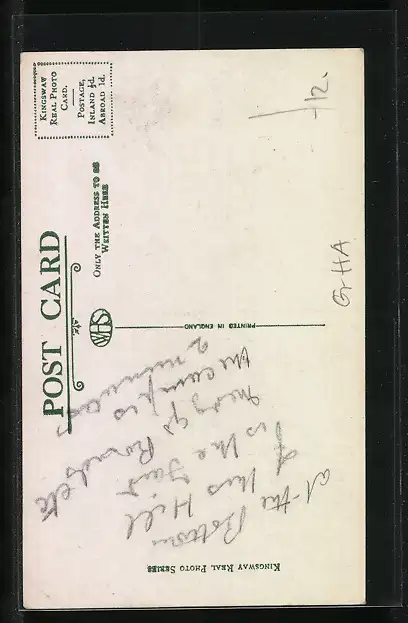 POST CARD
KINGSWAY
REAL PHOTO
CARD.
POSTAGE,
INLAND ½d.
ABROAD 1d.
ONLY THE ADDRESS TO BE
WRITTEN HERE
WHS
PRINTED IN ENGLAND
KINGSWAY REAL PHOTO SERIES
at the Bottom
of this Hill
is the
Roads etc
the camp is
2 minutes
1/12.
GHA